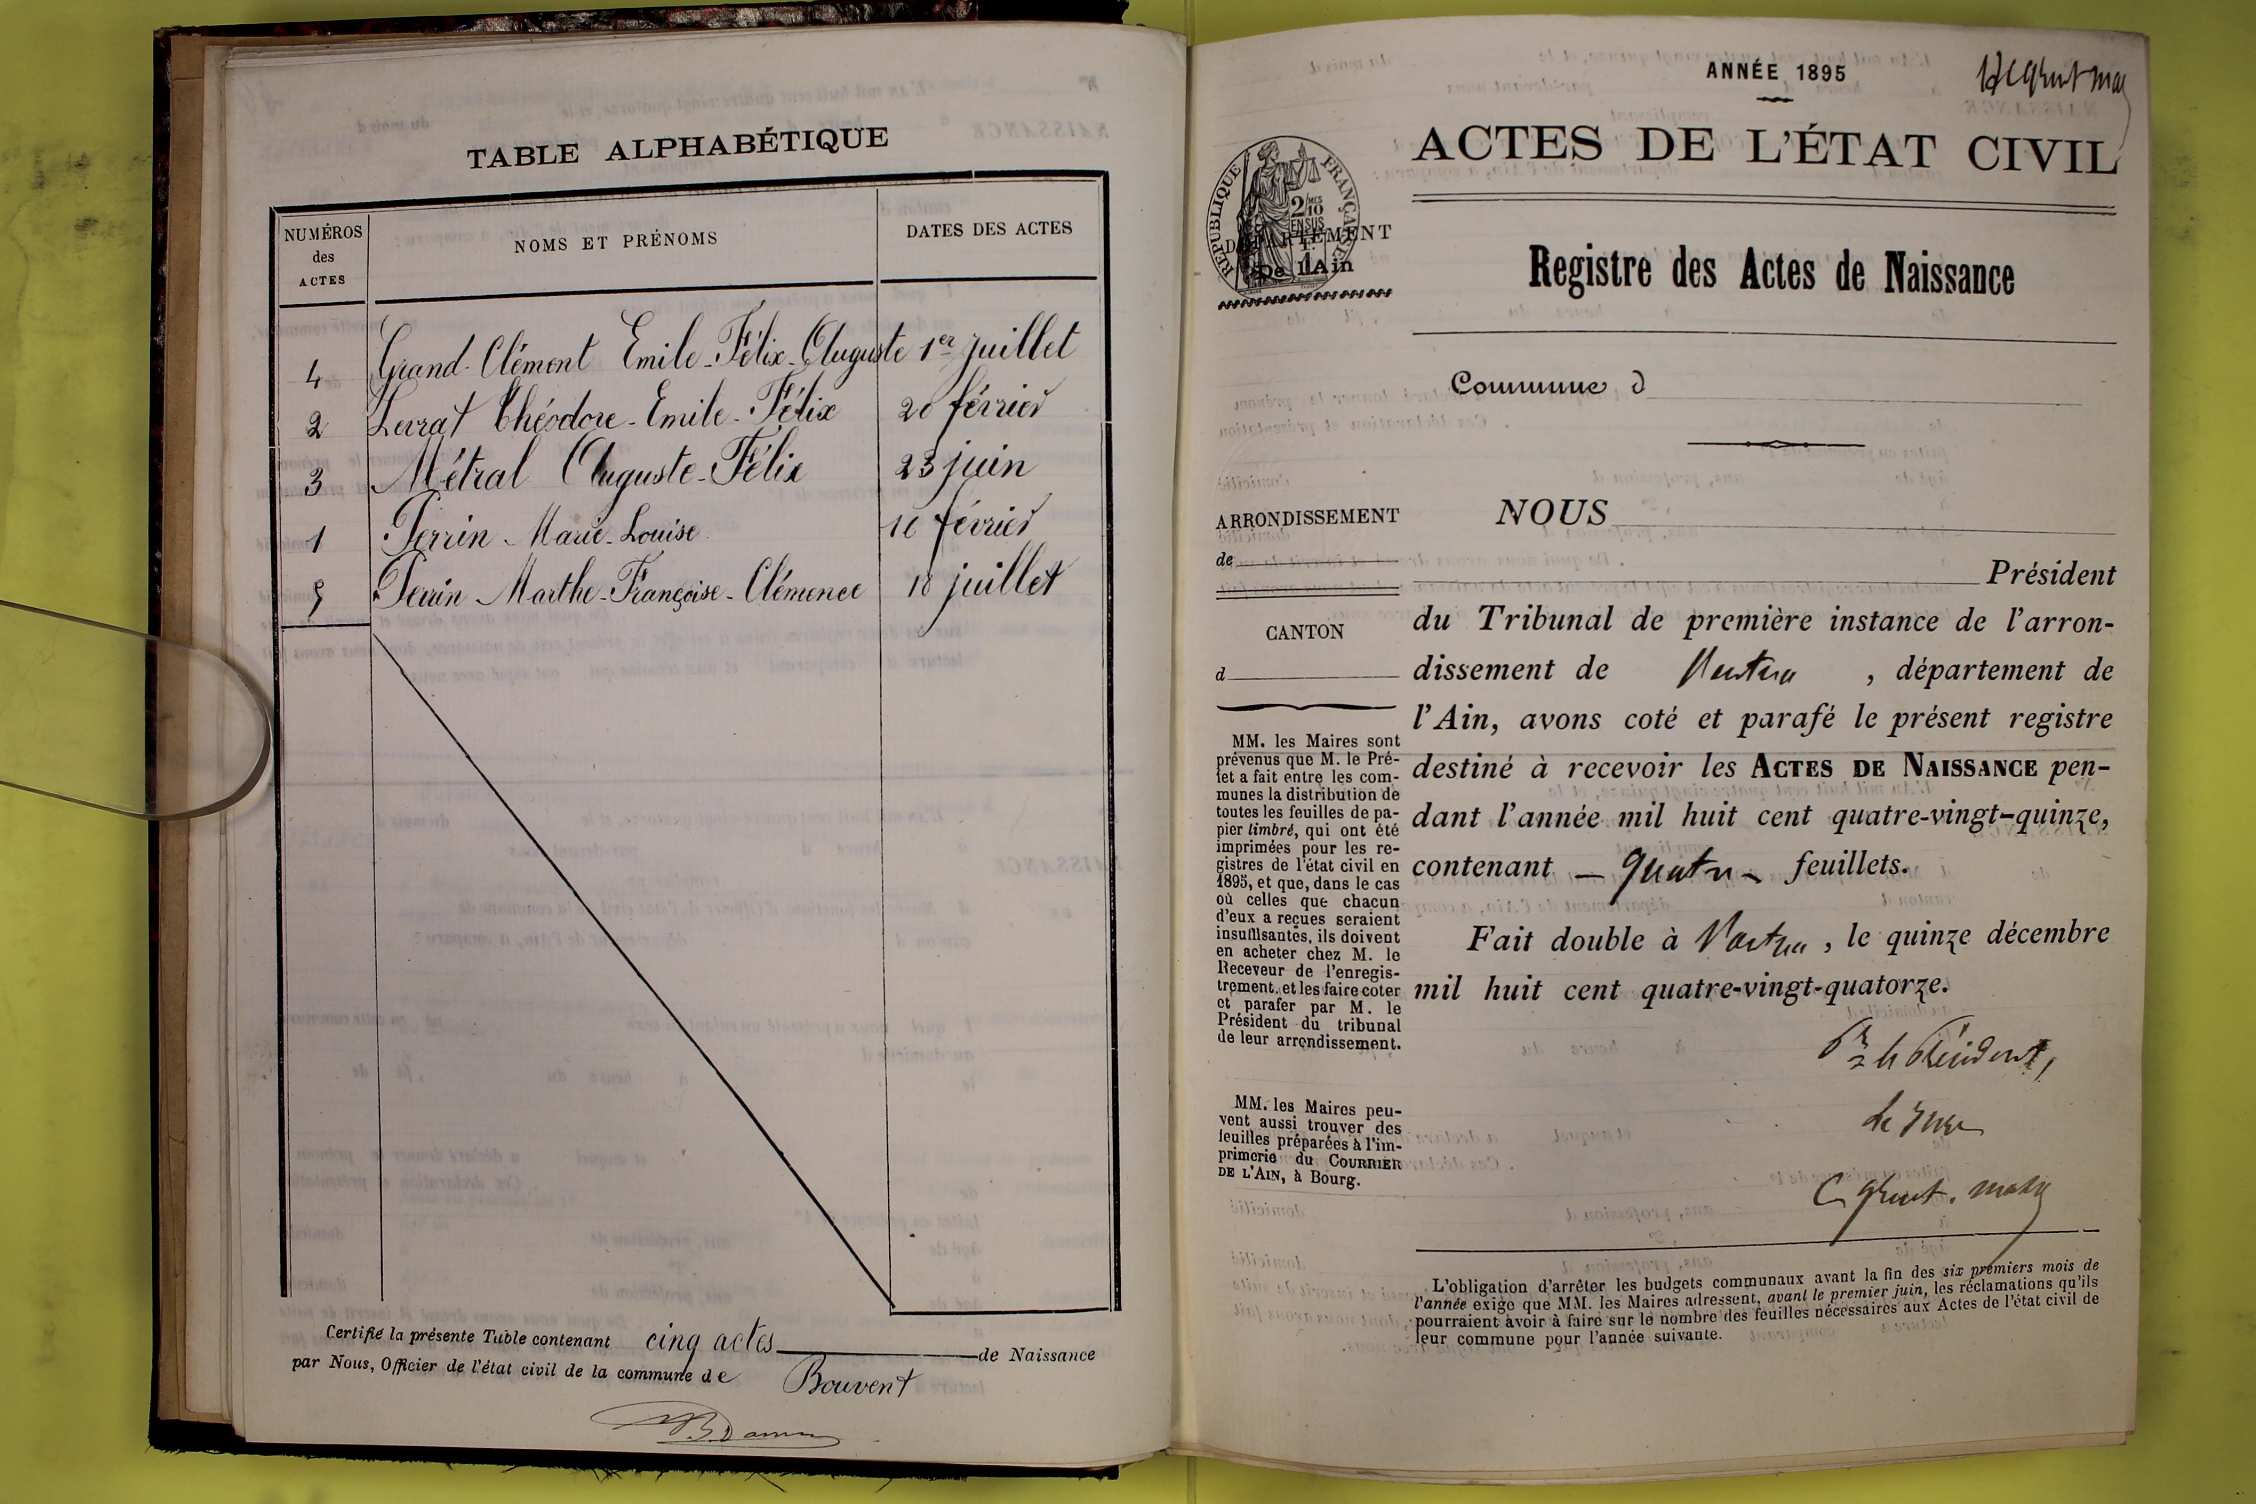 TABLE ALPHABÉTIQUE
NUMÉROS des ACTES
NOMS ET PRÉNOMS
DATES DES ACTES
4 Grand-Clément Emile-Félix-Auguste 1er juillet
2 Levrat Théodore-Emile-Félix 20 février
3 Métral Auguste-Félix 23 juin
1 Perrin Marie-Louise 10 février
5 Perrin Marthe-Françoise-Clémence 18 juillet
Certifié la présente Table contenant cinq actes de Naissance
par Nous, Officier de l'état civil de la commune de Bouvent
ANNÉE 1895
ACTES DE L'ÉTAT CIVIL
RÉPUBLIQUE FRANÇAISE
2/10MES
EN SUS
DÉPARTEMENT
De L'Ain
Registre des Actes de Naissance
Commune d
ARRONDISSEMENT
de
CANTON
d
MM. les Maires sont
prévenus que M. le Pré-
fet a fait entre les com-
munes la distribution de
toutes les feuilles de pa-
pier timbré, qui ont été
imprimées pour les re-
gistres de l'état civil en
1895, et que, dans le cas
où celles que chacun
d'eux a reçues seraient
insuffisantes, ils doivent
en acheter chez M. le
Receveur de l'enregis-
trement, et les faire coter
et parafer par M. le
Président du tribunal
de leur arrondissement.
MM. les Maires peu-
vent aussi trouver des
feuilles préparées à l'im-
primerie du COURRIER
DE L'AIN, à Bourg.
NOUS
Président
du Tribunal de première instance de l'arron-
dissement de Nantua, département de
l'Ain, avons coté et parafé le présent registre
destiné à recevoir les ACTES DE NAISSANCE pen-
dant l'année mil huit cent quatre-vingt-quinze,
contenant – quatre – feuillets.
Fait double à Nantua, le quinze décembre
mil huit cent quatre-vingt-quatorze.
Pr le Président,
Le Juge
L'obligation d'arrêter les budgets communaux avant la fin des six premiers mois de
l'année exige que MM. les Maires adressent, avant le premier juin, les réclamations qu'ils
pourraient avoir à faire sur le nombre des feuilles nécessaires aux Actes de l'état civil de
leur commune pour l'année suivante.